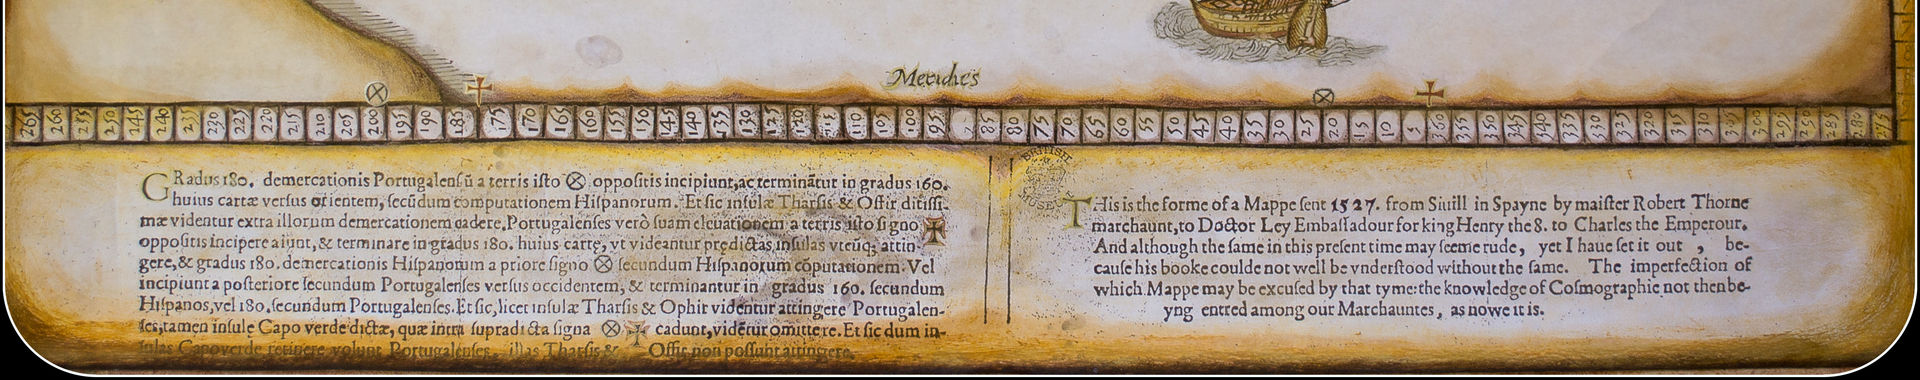 Meridies
265 260 255 250 245 240 235 230 225 220 215 210 205 200 195 190 185 175 170 165 160 155 150 145 140 135 130 125 120 115 110 105 100 95 85 80 75 70 65 60 55 50 45 40 35 30 25 20 15 10 5 360 355 350 345 340 335 330 325 320 315 310 305 300 295 290 285 280 275
GRadus 180. demercationis Portugalensũ a terris isto ⊗ oppositis incipiunt, ac terminãtur in gradus 160.
huius cartæ versus orientem, secũdum computationem Hispanorum. Et sic insulæ Tharsis & Offir ditissi-
mæ videntur extra illorum demercationem cadere, Portugalenses verò suam eleuationem a terris isto signo ✠
oppositis incipere aiunt, & terminare in gradus 180. huius cartę, vt videantur prędictas insulas vteũq; attin
gere, & gradus 180. demercationis Hispanorum a priore signo ⊗ secundum Hispanorum cõputationem. Vel
incipiunt a posteriore secundum Portugalenses versus occidentem, & terminantur in gradus 160. secundum
Hispanos, vel 180. secundum Portugalenses. Et sic, licet insulæ Tharsis & Ophir videntur attingere Portugalen-
ses, tamen insule Capo verde dictæ, quæ intra supradicta signa ⊗ ✠ cadunt, vidẽtur omittere. Et sic dum in-
sulas Capo verde retinere volunt Portugalenses, illas Tharsis & Offir non possunt attingere.
BRITISH
MUSEUM
THis is the forme of a Mappe sent 1527. from Siuill in Spayne by maister Robert Thorne
marchaunt, to Doctor Ley Embassadour for king Henry the 8. to Charles the Emperour.
And although the same in this present time may seeme rude, yet I haue set it out , be-
cause his booke coulde not well be vnderstood without the same. The imperfection of
which Mappe may be excused by that tyme: the knowledge of Cosmographie not then be-
yng entred among our Marchauntes, as nowe it is.